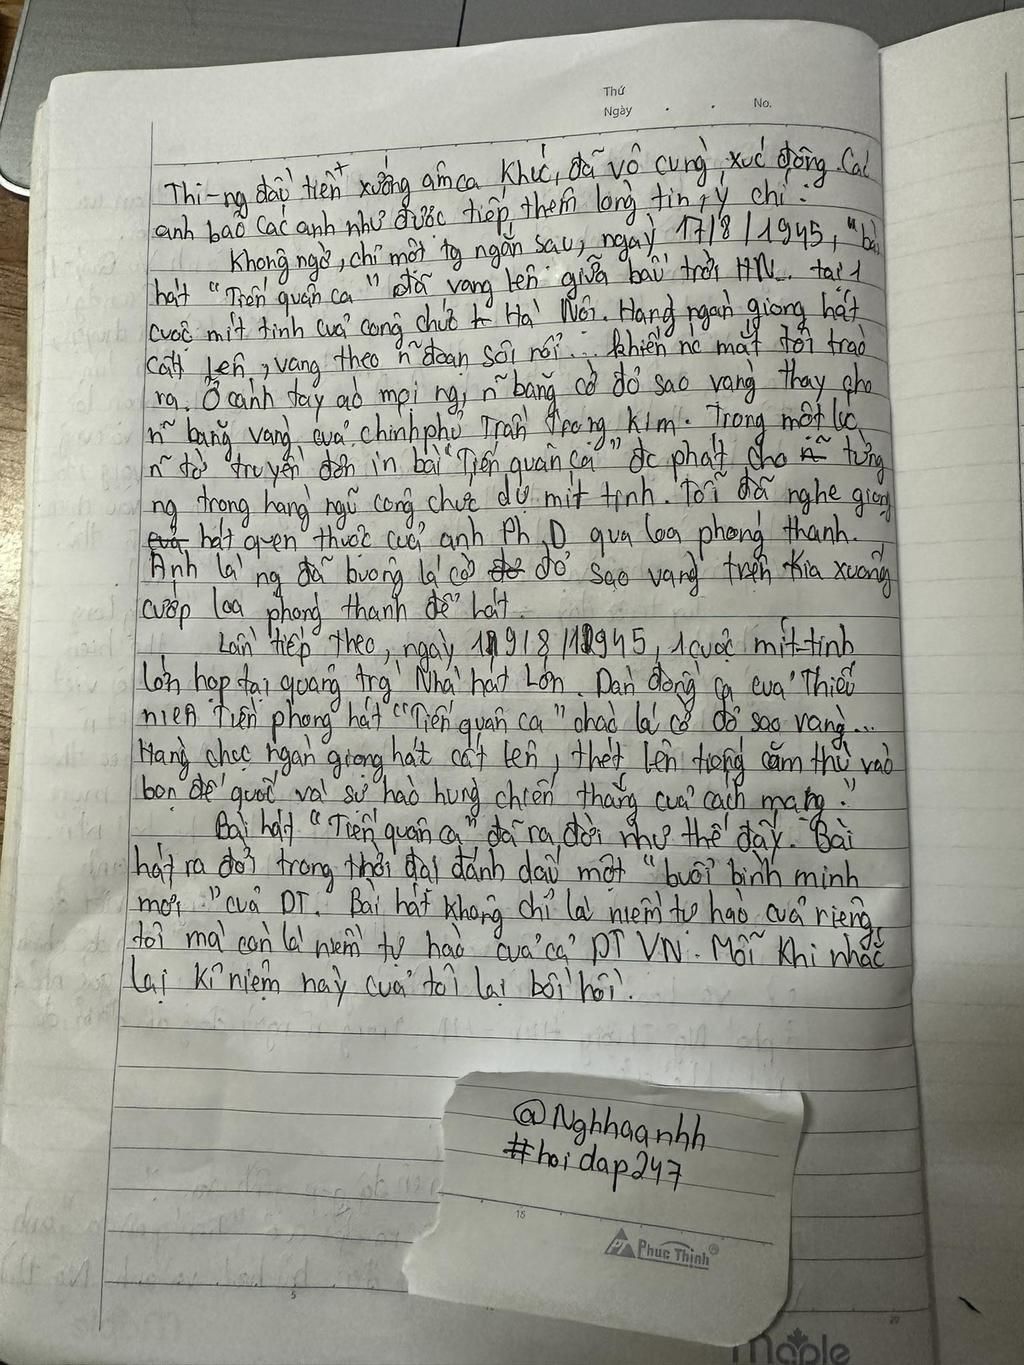 Thứ
Ngày . . No.
Thi – ng đầu tiên + xướng âm ca khúc, đã vô cùng xúc động. Các
anh bảo các anh như được tiếp thêm lòng tin, ý chí :
Không ngờ, chỉ một tg ngắn sau, ngày 17/8/1945, "bài
hát "Tiến quân ca" đã vang lên giữa bầu trời HN tại 1
cuộc mít tinh của công chức Hà Nội. Hàng ngàn giọng hát
cất lên, vang theo n~ đoạn sôi nổi... khiến nc mắt tôi trào
ra. Ở cánh tay áo mọi ng, n~ băng cờ đỏ sao vàng thay cho
n~ băng vàng của chính phủ Trần Trọng Kim. Trong một lúc,
n~ tờ truyền đơn in bài "Tiến quân ca" đc phát cho từng
ng trong hàng ngũ công chức dự mít tinh. Tôi đã nghe giọng
hát quen thuộc của anh Ph.D qua loa phóng thanh.
Anh là ng đã buông lá cờ đỏ sao vàng trên kia xuống
cướp loa phóng thanh để hát.
Lần tiếp theo, ngày 19/8/1945, 1 cuộc mít-tinh
lớn họp tại quảng trg Nhà hát Lớn. Dàn đồng ca của Thiếu
niên Tiền phong hát "Tiến quân ca" chào lá cờ đỏ sao vàng...
Hàng chục ngàn giọng hát cất lên, thét lên tiếng căm thù vào
bọn đế quốc và sự hào hùng chiến thắng của cách mạng."
Bài hát "Tiến quân ca" đã ra đời như thế đấy. Bài
hát ra đời trong thời đại đánh dấu một "buổi bình minh
mới" của DT. Bài hát không chỉ là niềm tự hào của riêng
tôi mà còn là niềm tự hào của cả DT VN. Mỗi khi nhắc
lại kỉ niệm này của tôi lại bồi hồi.
@Nghhaanhh
#hoidap247
15
PT Phuc Thinh®
5
20
Maple